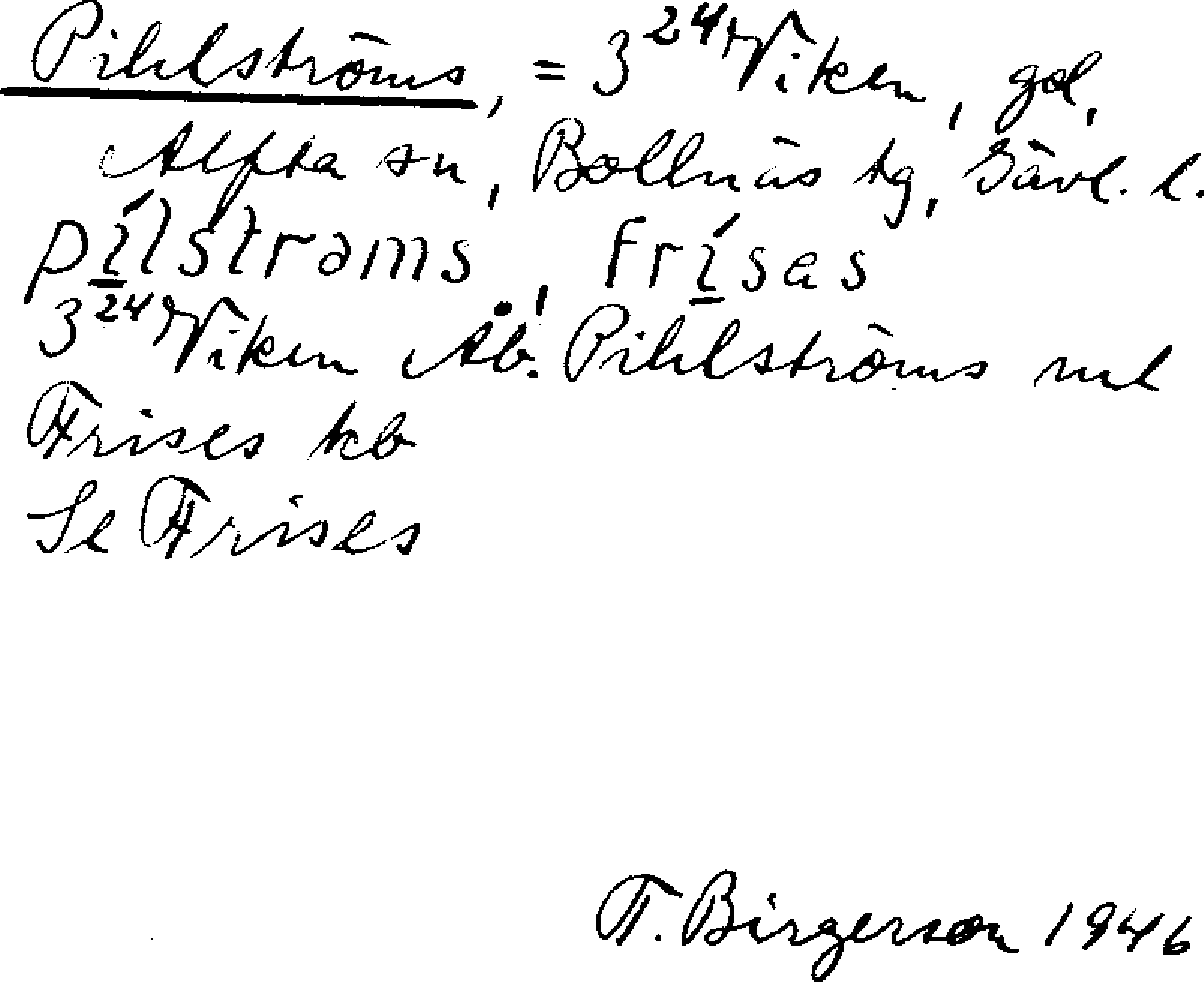 Pihlströms, = 3²⁴ Viken, gd,
Alfta sn, Bollnäs tg, Gävl. l.
pí̲lstrəms, frí̲səs
3²⁴ Viken Åb. Pihlströms ml
Frises kb
Se Frises
F. Birgerson 1946